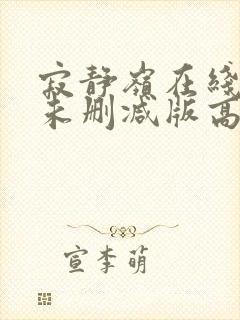 寂静嶺在綫
未删减版高
宣李萌